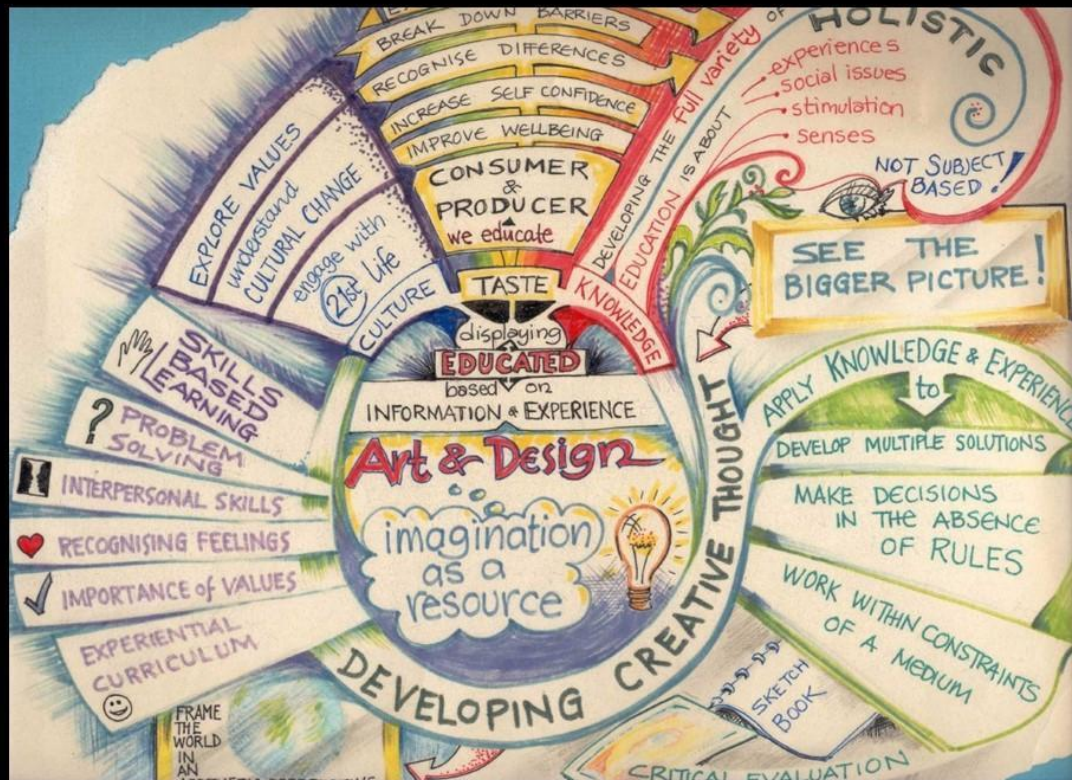 BREAK DOWN BARRIERS
RECOGNISE DIFFERENCES
INCREASE SELF CONFIDENCE
IMPROVE WELLBEING
CONSUMER
&
PRODUCER
we educate
TASTE
displaying
EDUCATED
based on
INFORMATION & EXPERIENCE
Art & Design
imagination
as a
resource
DEVELOPING CREATIVE THOUGHT
EXPLORE VALUES
understand
CULTURAL CHANGE
engage with
21st life
CULTURE
SKILLS
BASED
LEARNING
?
PROBLEM
SOLVING
INTERPERSONAL SKILLS
RECOGNISING FEELINGS
IMPORTANCE of VALUES
EXPERIENTIAL
CURRICULUM
FRAME
THE
WORLD
IN
AN
KNOWLEDGE
DEVELOPING THE full variety OF
EDUCATION IS ABOUT
HOLISTIC
experiences
social issues
stimulation
senses
NOT SUBJECT
BASED!
SEE THE
BIGGER PICTURE!
APPLY KNOWLEDGE & EXPERIENCE
to
DEVELOP MULTIPLE SOLUTIONS
MAKE DECISIONS
IN THE ABSENCE
OF RULES
WORK WITHIN CONSTRAINTS
OF A MEDIUM
SKETCH
BOOK
CRITICAL EVALUATION